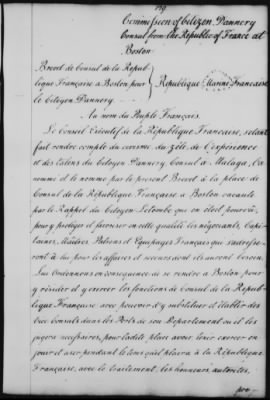 79
Commission of Citizen Dannery
Consul from the Republic of France at
Boston
Brevet de Consul de la Repub-
lique Française a Boston pour
le citoyen Dannery.
République Marine Francaise
Au nom du Peuple Français.
Le Conseil Executif de la République Francaise, s'étant
fait rendre compte du civisme du zéle, de l'expérience
et des talens du Citoyen Dannery, Consul a Malaga, l'a
nommé et le nomme par le present Brevet à la place de
Consul de la République Française à Boston vacante
par le Rappel du Citoyen Letombe que en étoit pourvû,
pour y protéger et favoriser en cette qualité les négociants, Capi-
taines, Maitres Patrons et Equipages Français que s'adresse-
ront à lui pour les affaires et secours dont ils auront besoin.
Lui Ordonnons en consequence de se rendre a Boston pour
y résider et exercer les fonctions de Consul de la Repub-
lique Française avec pouvoir d'y substituer et établir des
Vice Consuls dans les Ports de son Departement ou il les
jugera necessaires, pour ladite place avoir tenir exercer en
jouir et user pendant le tems qu'il plaira a la République
Française, avec le traitement, les honneurs, autorités,
pre-